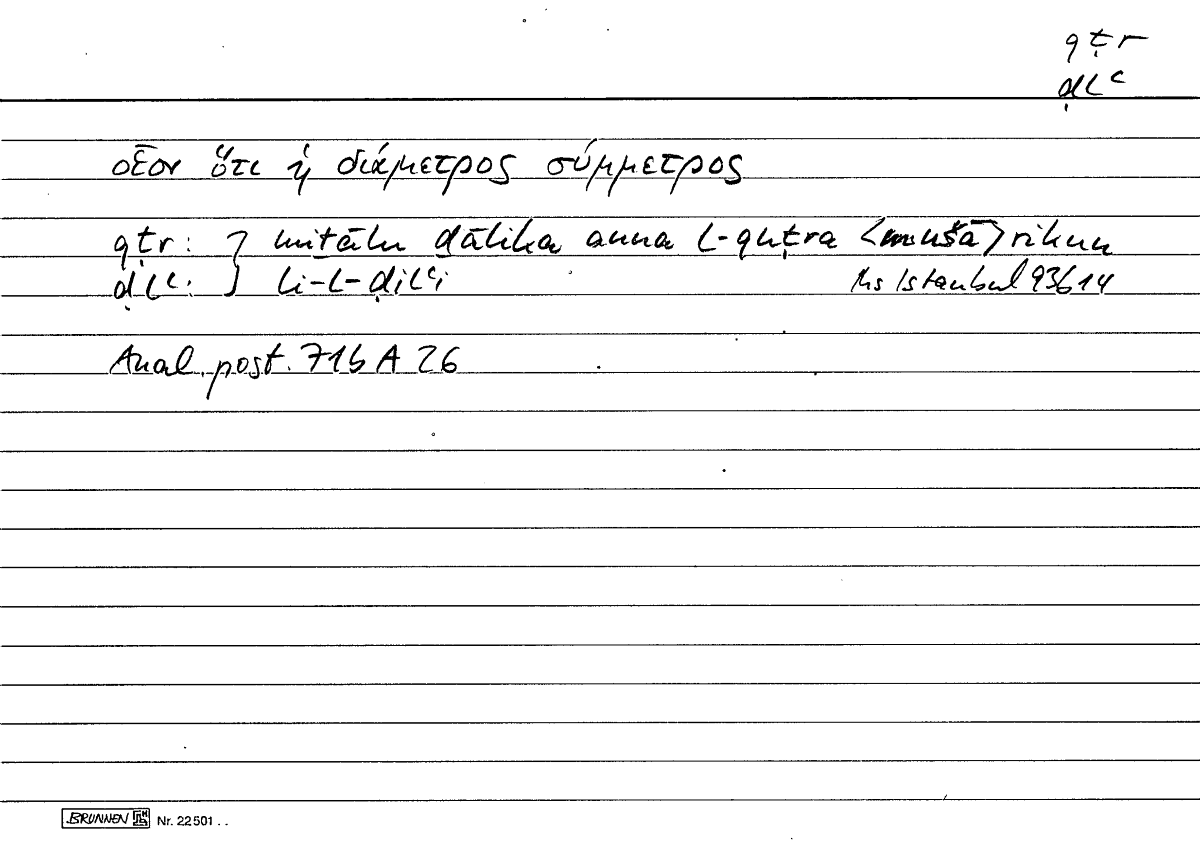 qṭr
ḍlʿ
οἷον ὅτι ἡ διάμετρος σύμμετρος
qṭr: } miṯālu ḏālika anna l-quṭra <mušā>rikun
ḍlʿ: } li-l-ḍilʿi Ms Istanbul 93614
Anal. post. 71b A 26
BRUNNEN Nr. 22501 . .